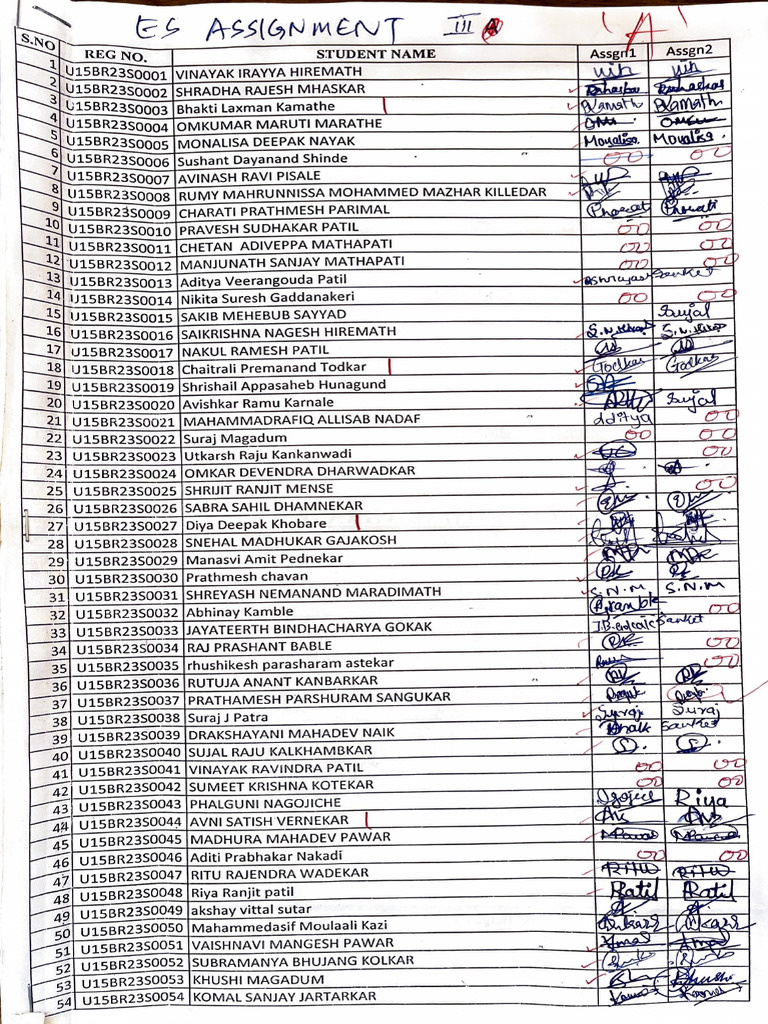 ES ASSIGNMENT III "A"
S.NO REG NO. STUDENT NAME Assgn1 Assgn2
1 U15BR23S0001 VINAYAK IRAYYA HIREMATH
2 U15BR23S0002 SHRADHA RAJESH MHASKAR
3 U15BR23S0003 Bhakti Laxman Kamathe BKamath BKamath
4 U15BR23S0004 OMKUMAR MARUTI MARATHE
5 U15BR23S0005 MONALISA DEEPAK NAYAK Monalisa Monalisa
6 U15BR23S0006 Sushant Dayanand Shinde 00 00
7 U15BR23S0007 AVINASH RAVI PISALE
8 U15BR23S0008 RUMY MAHRUNNISSA MOHAMMED MAZHAR KILLEDAR
9 U15BR23S0009 CHARATI PRATHMESH PARIMAL
10 U15BR23S0010 PRAVESH SUDHAKAR PATIL 00 00
11 U15BR23S0011 CHETAN ADIVEPPA MATHAPATI 00 00
12 U15BR23S0012 MANJUNATH SANJAY MATHAPATI 00 00
13 U15BR23S0013 Aditya Veerangouda Patil Sanket
14 U15BR23S0014 Nikita Suresh Gaddanakeri 00 00
15 U15BR23S0015 SAKIB MEHEBUB SAYYAD Sujal
16 U15BR23S0016 SAIKRISHNA NAGESH HIREMATH
17 U15BR23S0017 NAKUL RAMESH PATIL
18 U15BR23S0018 Chaitrali Premanand Todkar
19 U15BR23S0019 Shrishail Appasaheb Hunagund
20 U15BR23S0020 Avishkar Ramu Karnale Sujal
21 U15BR23S0021 MAHAMMADRAFIQ ALLISAB NADAF Aditya 00
22 U15BR23S0022 Suraj Magadum 00 00
23 U15BR23S0023 Utkarsh Raju Kankanwadi 00
24 U15BR23S0024 OMKAR DEVENDRA DHARWADKAR
25 U15BR23S0025 SHRIJIT RANJIT MENSE 00
26 U15BR23S0026 SABRA SAHIL DHAMNEKAR
27 U15BR23S0027 Diya Deepak Khobare
28 U15BR23S0028 SNEHAL MADHUKAR GAJAKOSH
29 U15BR23S0029 Manasvi Amit Pednekar
30 U15BR23S0030 Prathmesh chavan
31 U15BR23S0031 SHREYASH NEMANAND MARADIMATH S.N.M S.N.M
32 U15BR23S0032 Abhinay Kamble 00
33 U15BR23S0033 JAYATEERTH BINDHACHARYA GOKAK Sanket
34 U15BR23S0034 RAJ PRASHANT BABLE 00
35 U15BR23S0035 rhushikesh parasharam astekar 00
36 U15BR23S0036 RUTUJA ANANT KANBARKAR
37 U15BR23S0037 PRATHAMESH PARSHURAM SANGUKAR
38 U15BR23S0038 Suraj J Patra Suraj Suraj
39 U15BR23S0039 DRAKSHAYANI MAHADEV NAIK Sanket
40 U15BR23S0040 SUJAL RAJU KALKHAMBKAR S. S.
41 U15BR23S0041 VINAYAK RAVINDRA PATIL 00 00
42 U15BR23S0042 SUMEET KRISHNA KOTEKAR 00 00
43 U15BR23S0043 PHALGUNI NAGOJICHE Riya
44 U15BR23S0044 AVNI SATISH VERNEKAR
45 U15BR23S0045 MADHURA MAHADEV PAWAR
46 U15BR23S0046 Aditi Prabhakar Nakadi 00 00
47 U15BR23S0047 RITU RAJENDRA WADEKAR RITU RITU
48 U15BR23S0048 Riya Ranjit patil Patil Patil
49 U15BR23S0049 akshay vittal sutar
50 U15BR23S0050 Mahammedasif Moulaali Kazi
51 U15BR23S0051 VAISHNAVI MANGESH PAWAR
52 U15BR23S0052 SUBRAMANYA BHUJANG KOLKAR
53 U15BR23S0053 KHUSHI MAGADUM
54 U15BR23S0054 KOMAL SANJAY JARTARKAR